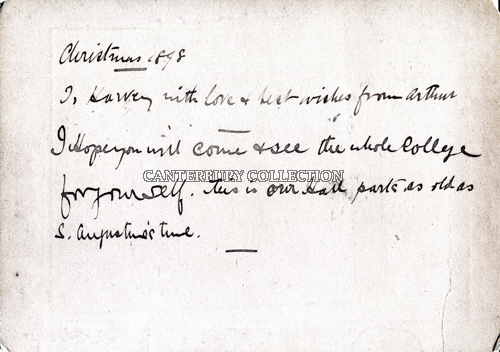 Christmas 1898
To Harvey with love & best wishes from Arthur
I Hope you will come & see the whole College
for yourself. This is our Hall parts as old as
CANTERBURY COLLECTION
S. Augustine's time.